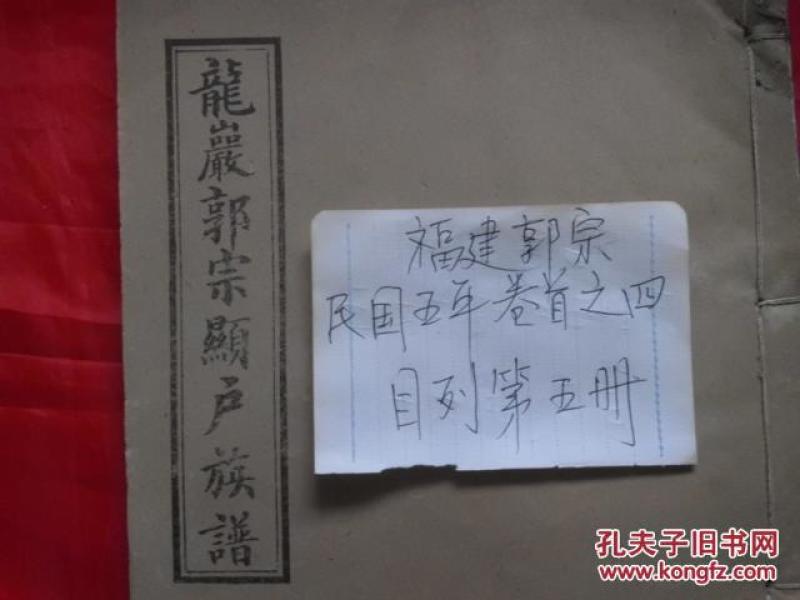 龍巖郭宗顯户族譜
福建郭宗
民国五年卷首之四
目列第五册
孔夫子旧书网
www.kongfz.com